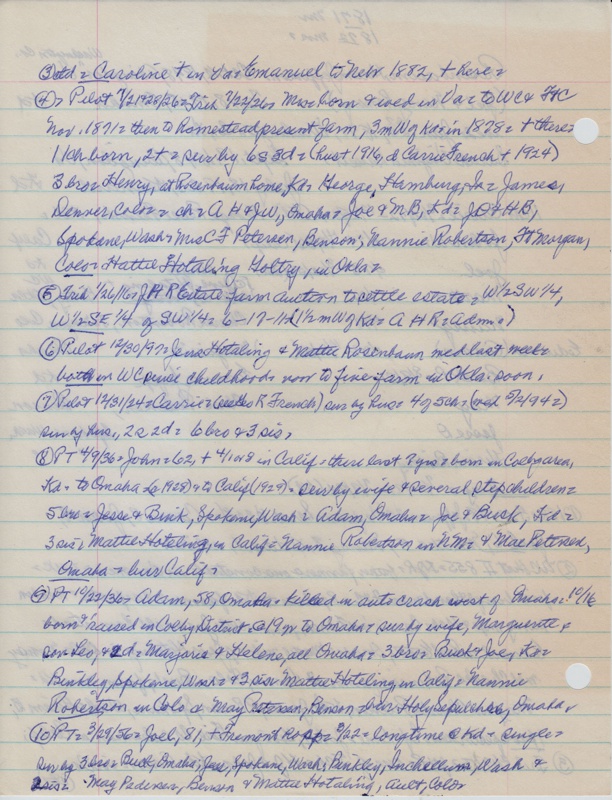 ③ Caroline + in Va = Emanuel to Nebr 1882, + here =
④ = Pilot 7/21 1926 = Trib 7/22/26 = Mrs = born & wed in Va = to WC &
Nov. 1871 = then to homestead present farm, 3m W of Kd = in 1878 = + there =
11 ch born, 2 + = surv by 6s 3d = (hus + 1916, d Carrie French + 1924)
3 bro = Henry, at Rosenbaum home, Kd = George, Hamburg, Ia = James,
Denver, Colo = ch = A H & JW, Omaha = Joe & MB, Kd = JO & HB,
Spokane, Wash = Mrs C F Petersen, Benson; Nannie Robertson, Ft Morgan,
Colo = Hattie Hotaling Goltry, in Okla =
⑤ Trib 1/26/16 = J H R Estate farm auction to settle estate = W½ SW¼,
W½ SE¼ of SW¼ = 6-17-11 (1½ m W of Kd = A H R = Adm.)
⑥ Pilot 12/30/97 = Jess Hotaling & Mattie Rosenbaum med last week =
both in WC since childhood = to farm in Okla. soon.
⑦ Pilot 12/31/24 = Carrie = R French) surv by hus = 4 of 5 ch = (wed 5/2/94 =)
surv by hus., 2s 2d = 6 bro & 3 sis =
⑧ PT 4/9/36 = John = 62, + 4/1 or 8 in Calif = there last 7 yrs = born in Colby area,
Kd = to Omaha (to 1928) & to Calif (1929) = surv by wife & several stepchildren =
5 bro = Jesse & Bink, Spokane, Wash = Adam, Omaha = Joe & Buck, Kd =
3 sis = Mattie Hoteling, in Calif = Nannie Robertson in NM = & Mae Petersen,
Omaha = bur Calif =
⑨ PT 10/22/36 = Adam, 58, Omaha = killed in auto crash west of Omaha = 10/16
born & raised in Colby District @ 19 yr to Omaha = surv by wife, Marguerite &
son Leo, & 2d = Marjorie & Helene, all Omaha = 3 bro = Buck & Joe, Kd =
Binkley, Spokane, Wash = & 3 sis = Mattie Hoteling in Calif = Nannie
Robertson in Colo & May Petersen, Benson = bur Holy Sepulchre, Omaha
⑩ PT = 3/29/56 = Joel, 81, + Fremont Hosp = 3/22 = longtime @ Kd = single =
surv by 3 bro = Buck, Omaha; Jess, Spokane, Wash; Binkley, Inchelium, Wash &
2 sis = May Pedersen, Benson & Mattie Hotaling, Ault, Colo